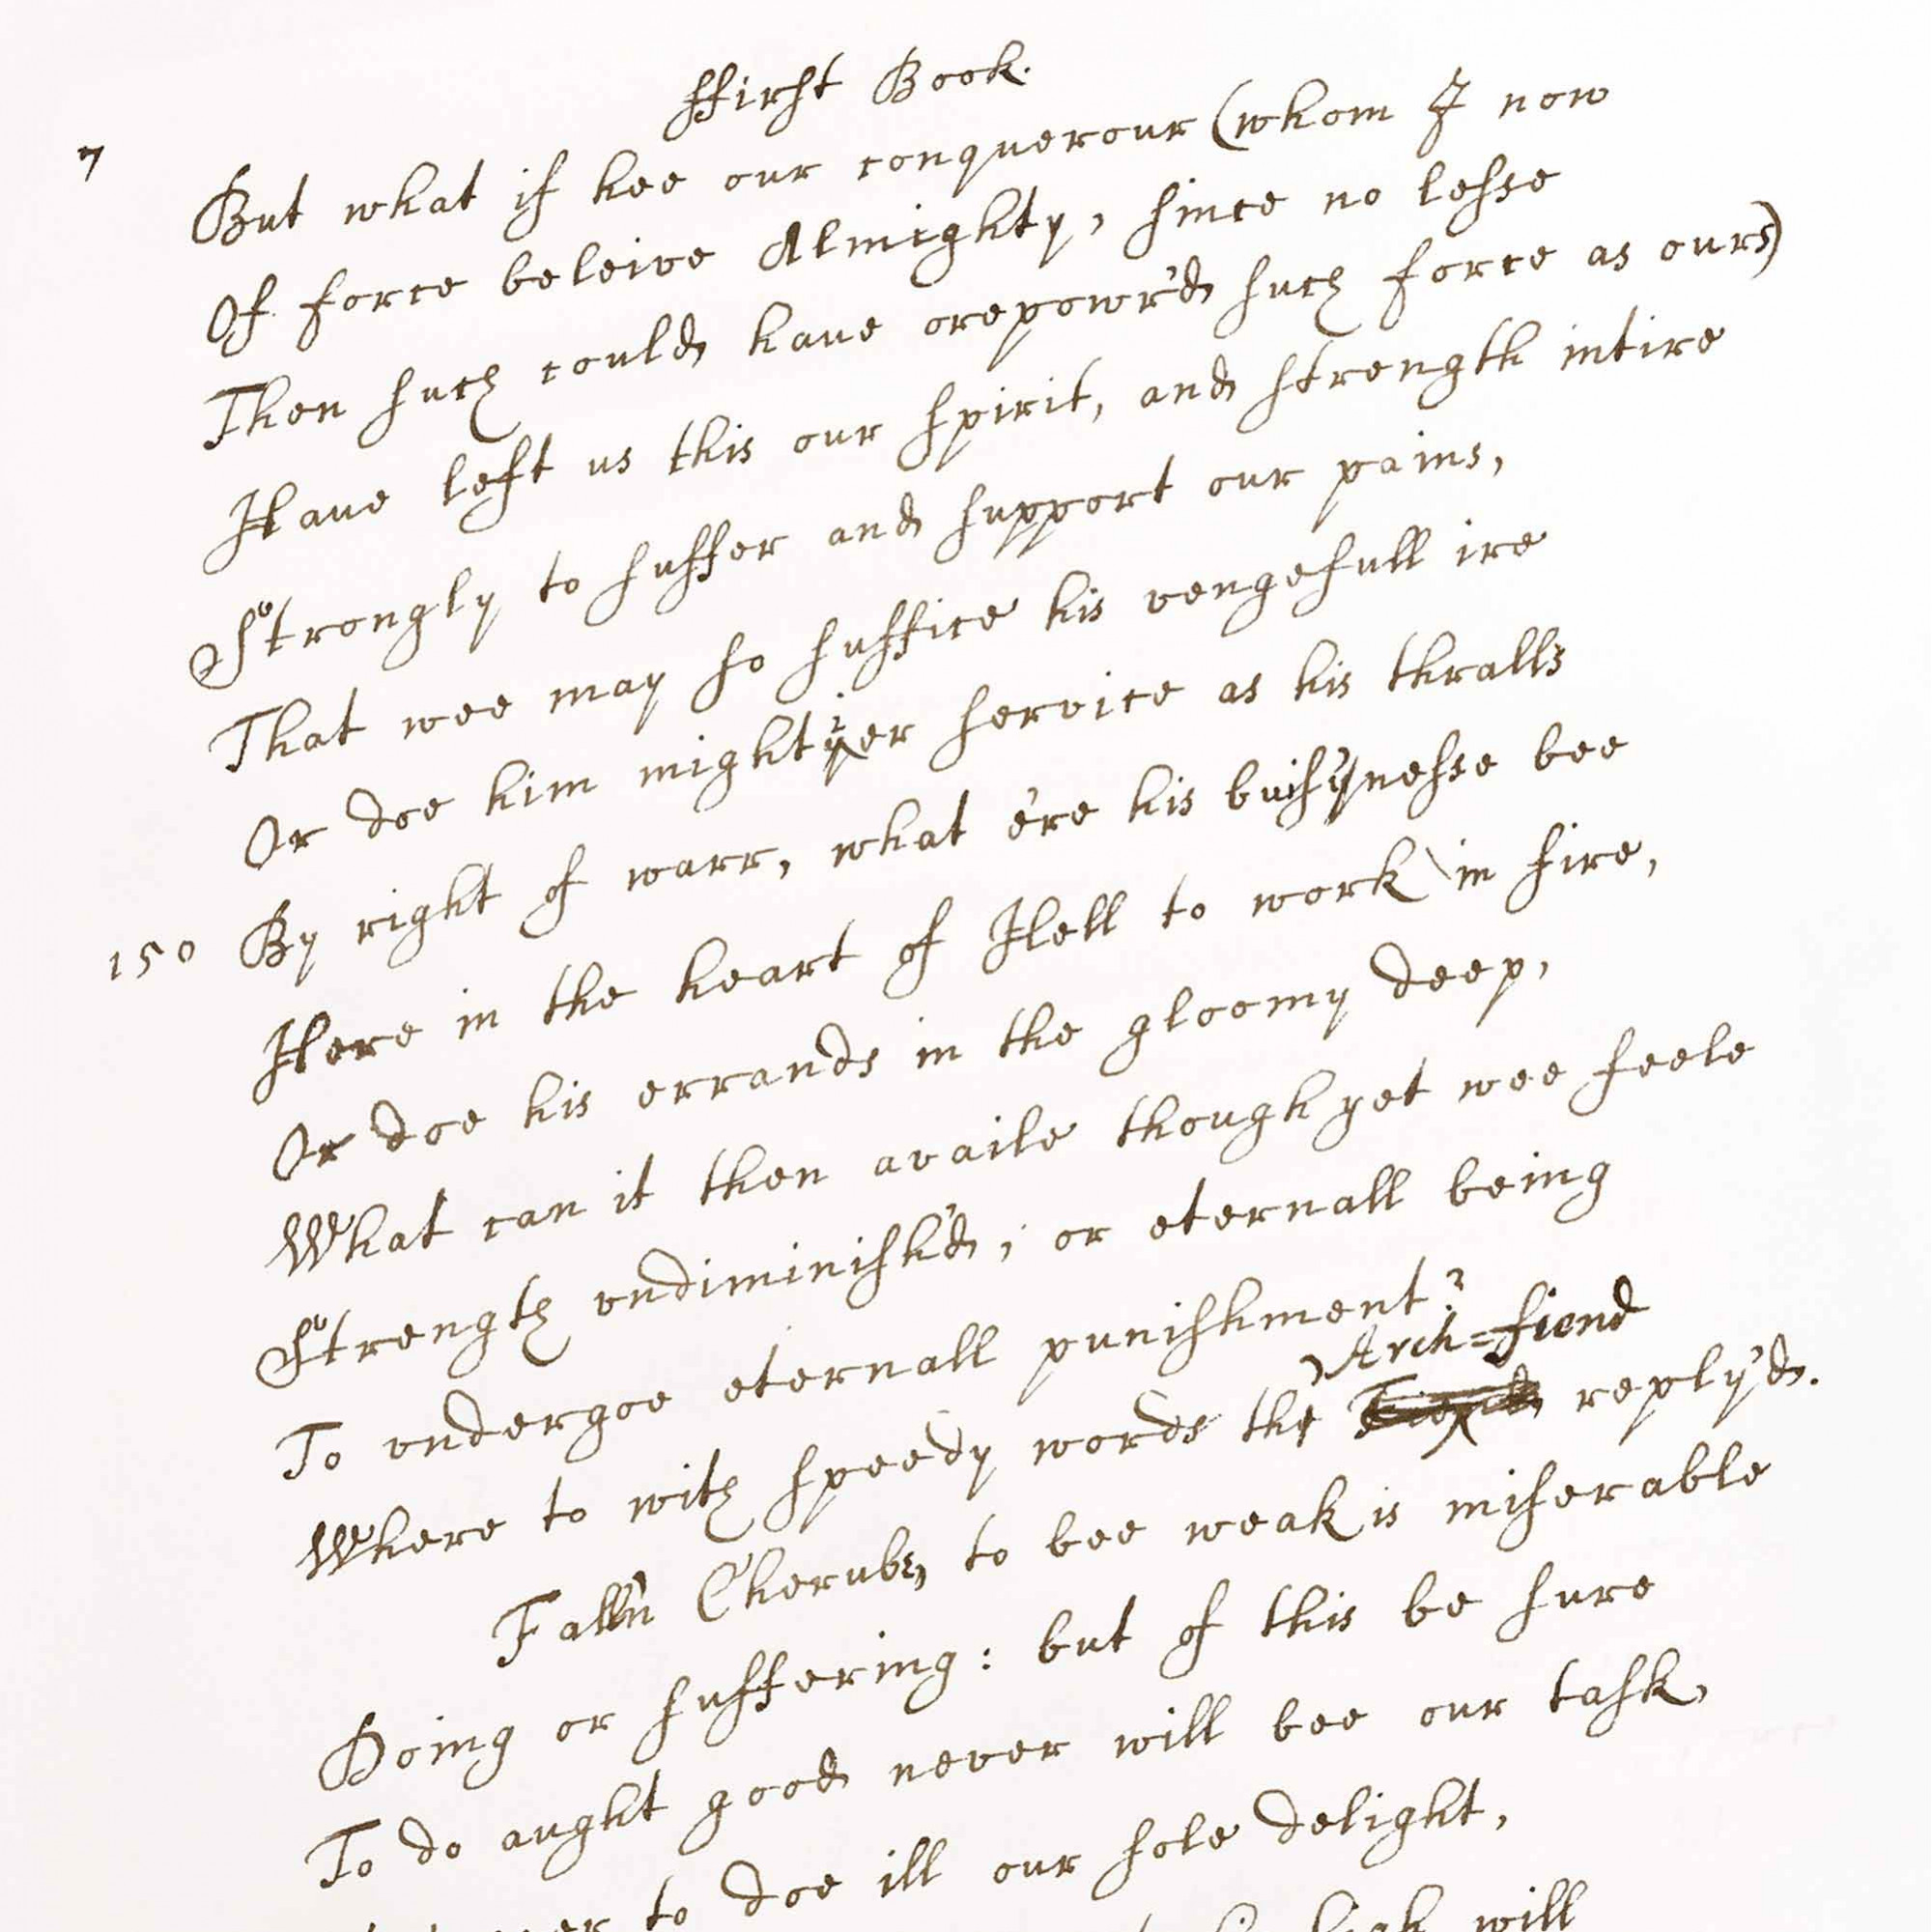 ffirst Book.
7
But what if hee our conquerour (whom I now
Of force beleive Almighty, since no lesse
Then such could have orepowr'd such force as ours)
Haue left us this our spirit, and strength intire
Strongly to suffer and support our pains,
That wee may so suffice his vengefull ire
Or doe him mightier service as his thralls
By right of warr, what e're his busynesse bee
150
Here in the heart of Hell to work in fire,
Or doe his errands in the gloomy deep,
What can it then availe though yet wee feele
Strength vndiminish'd; or eternall being
To vndergoe eternall punishment?
Arch=fiend
Where to with speedy words the reply'd.
Fall'n Cherub, to bee weak is miserable
Doing or suffering: but of this be sure
To do aught good never will bee our task,
to doe ill our sole delight,
will